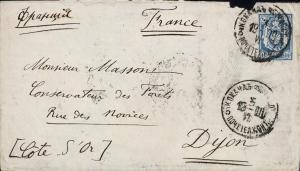 Франція
France
Monsieur Massone
Conservateur des Forêts
Rue des Novices
Dijon
[Côte d'Or]